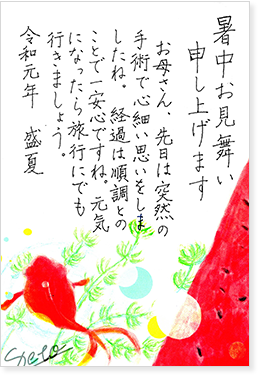 暑中お見舞い
申し上げます
お母さん、先日は突然の
手術で心細い思いをしま
したね。経過は順調との
ことで一安心ですね。元気
になったら旅行にでも
行きましょう。
令和元年 盛夏